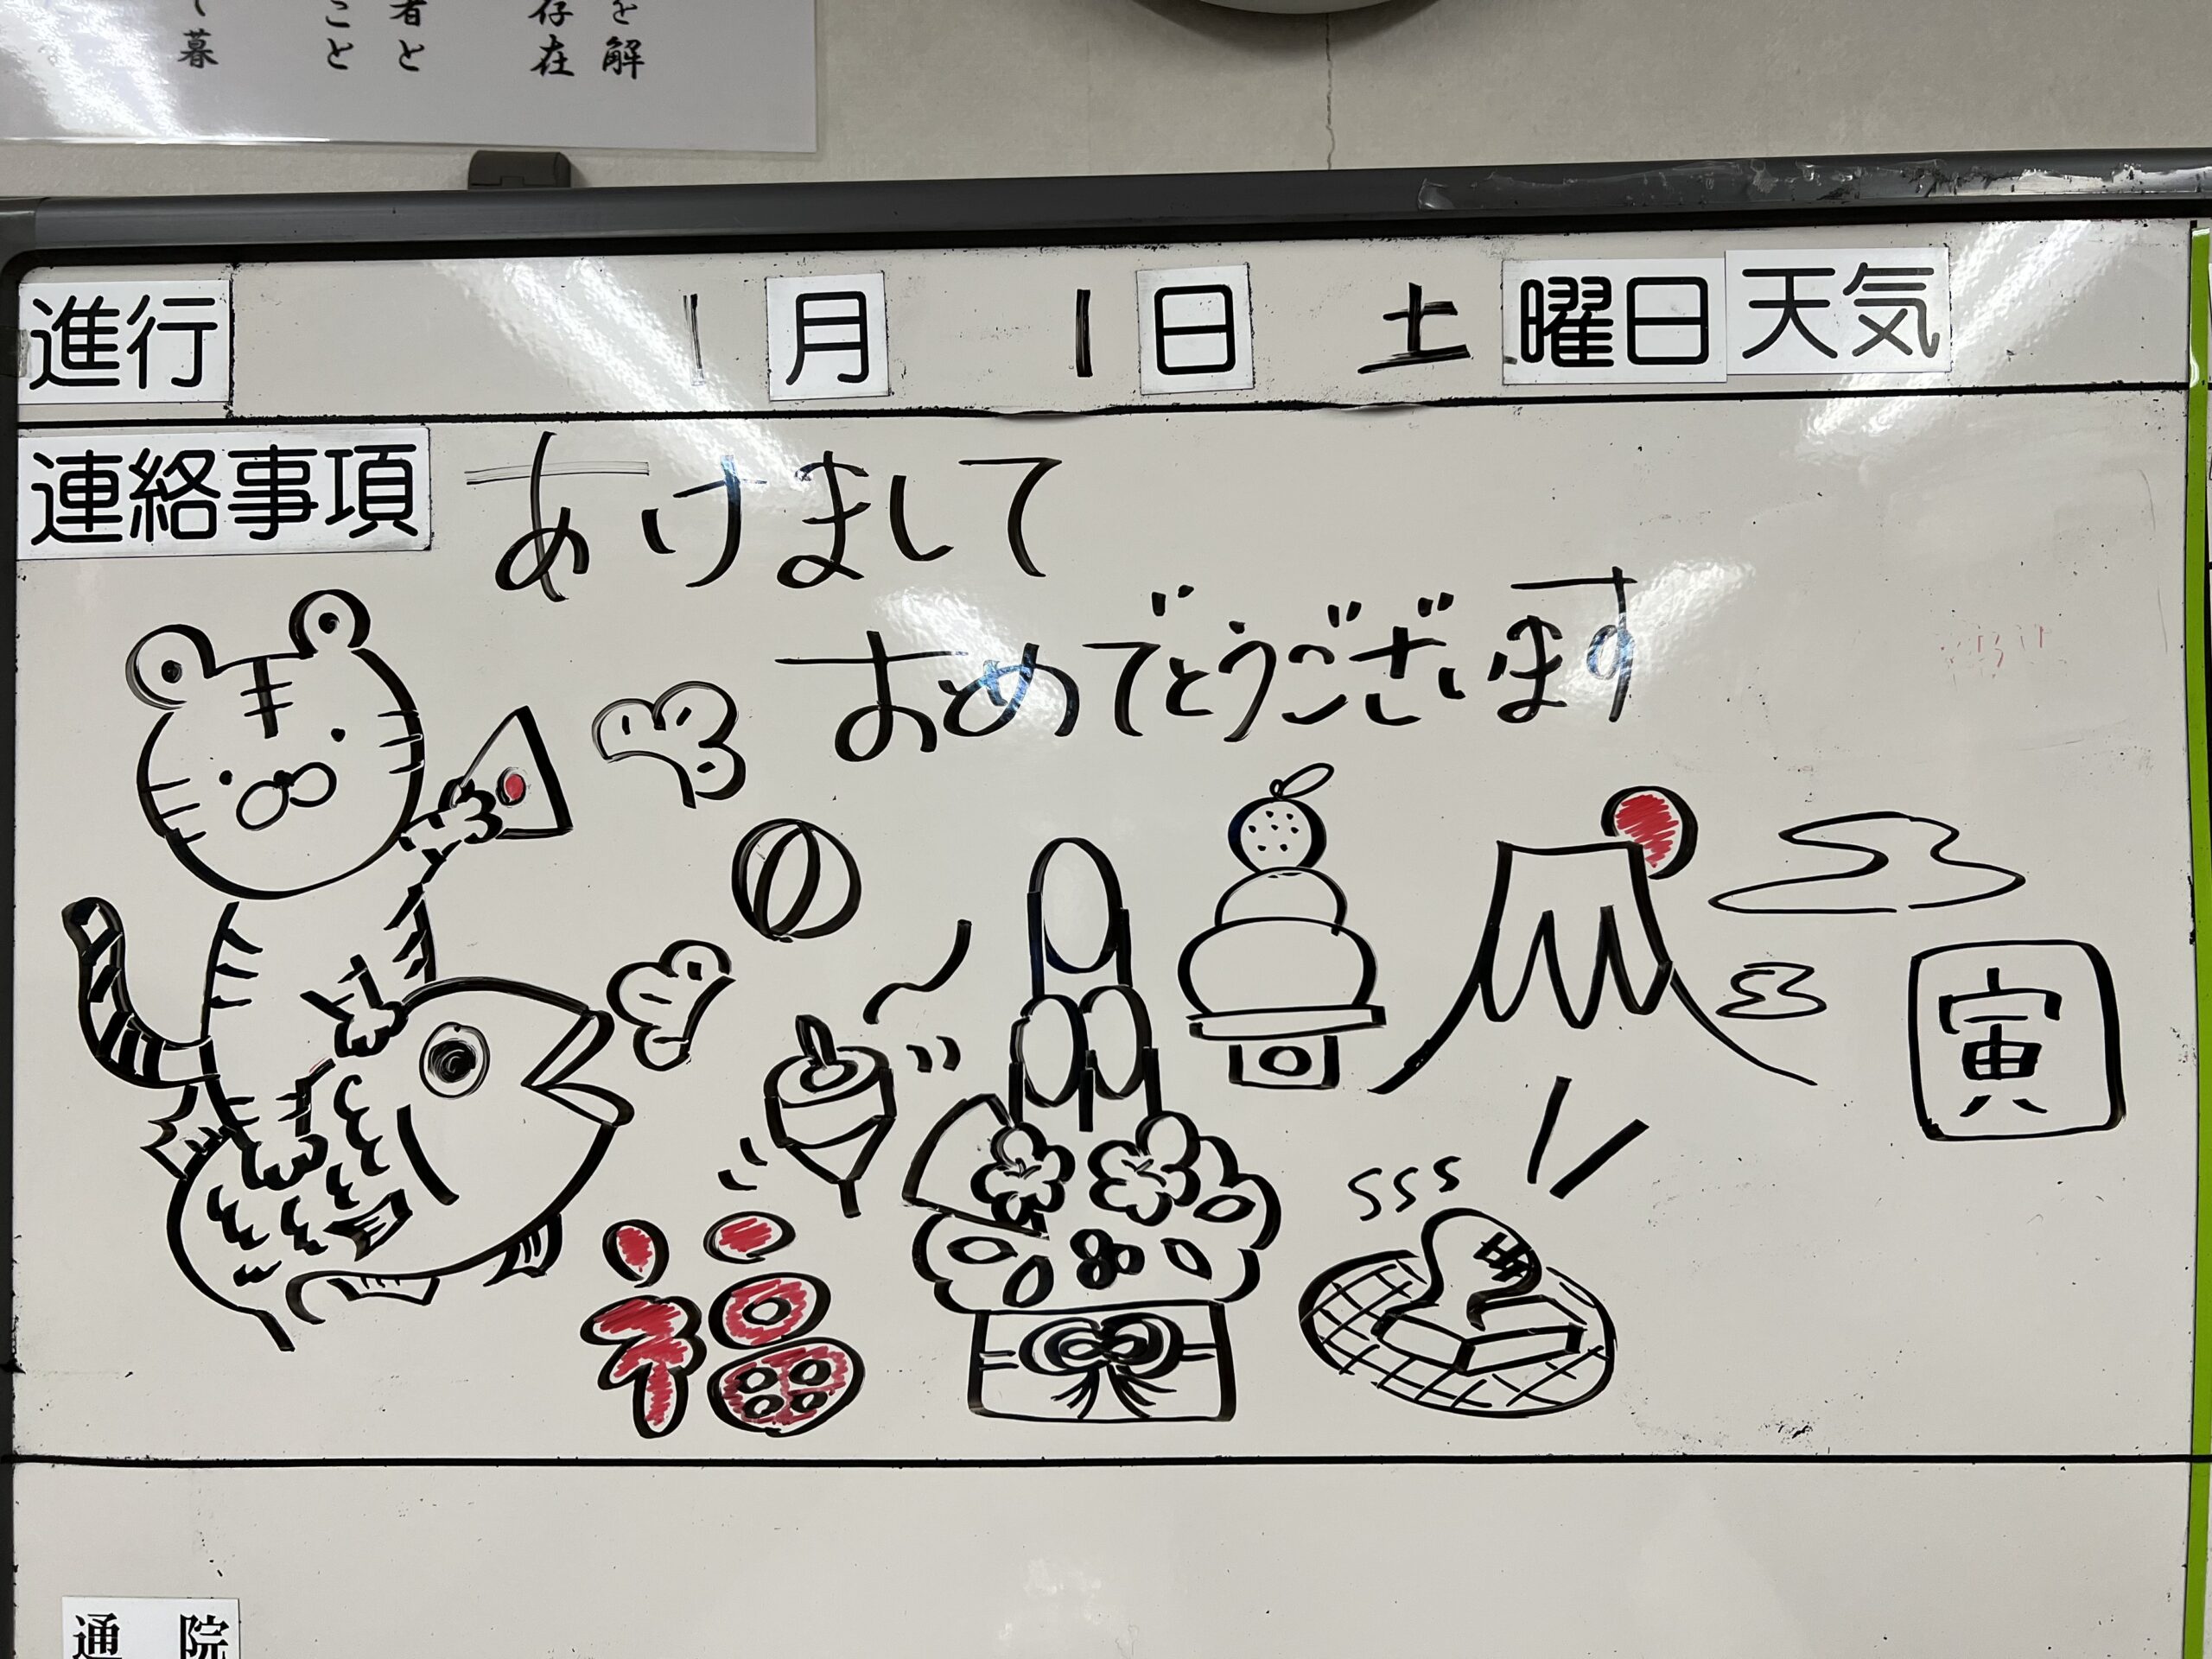 を解
存在
者と
こと
て暮
進行 1月 1日 土曜日 天気
連絡事項
あけまして
おめでとうございます
寅
福
通院